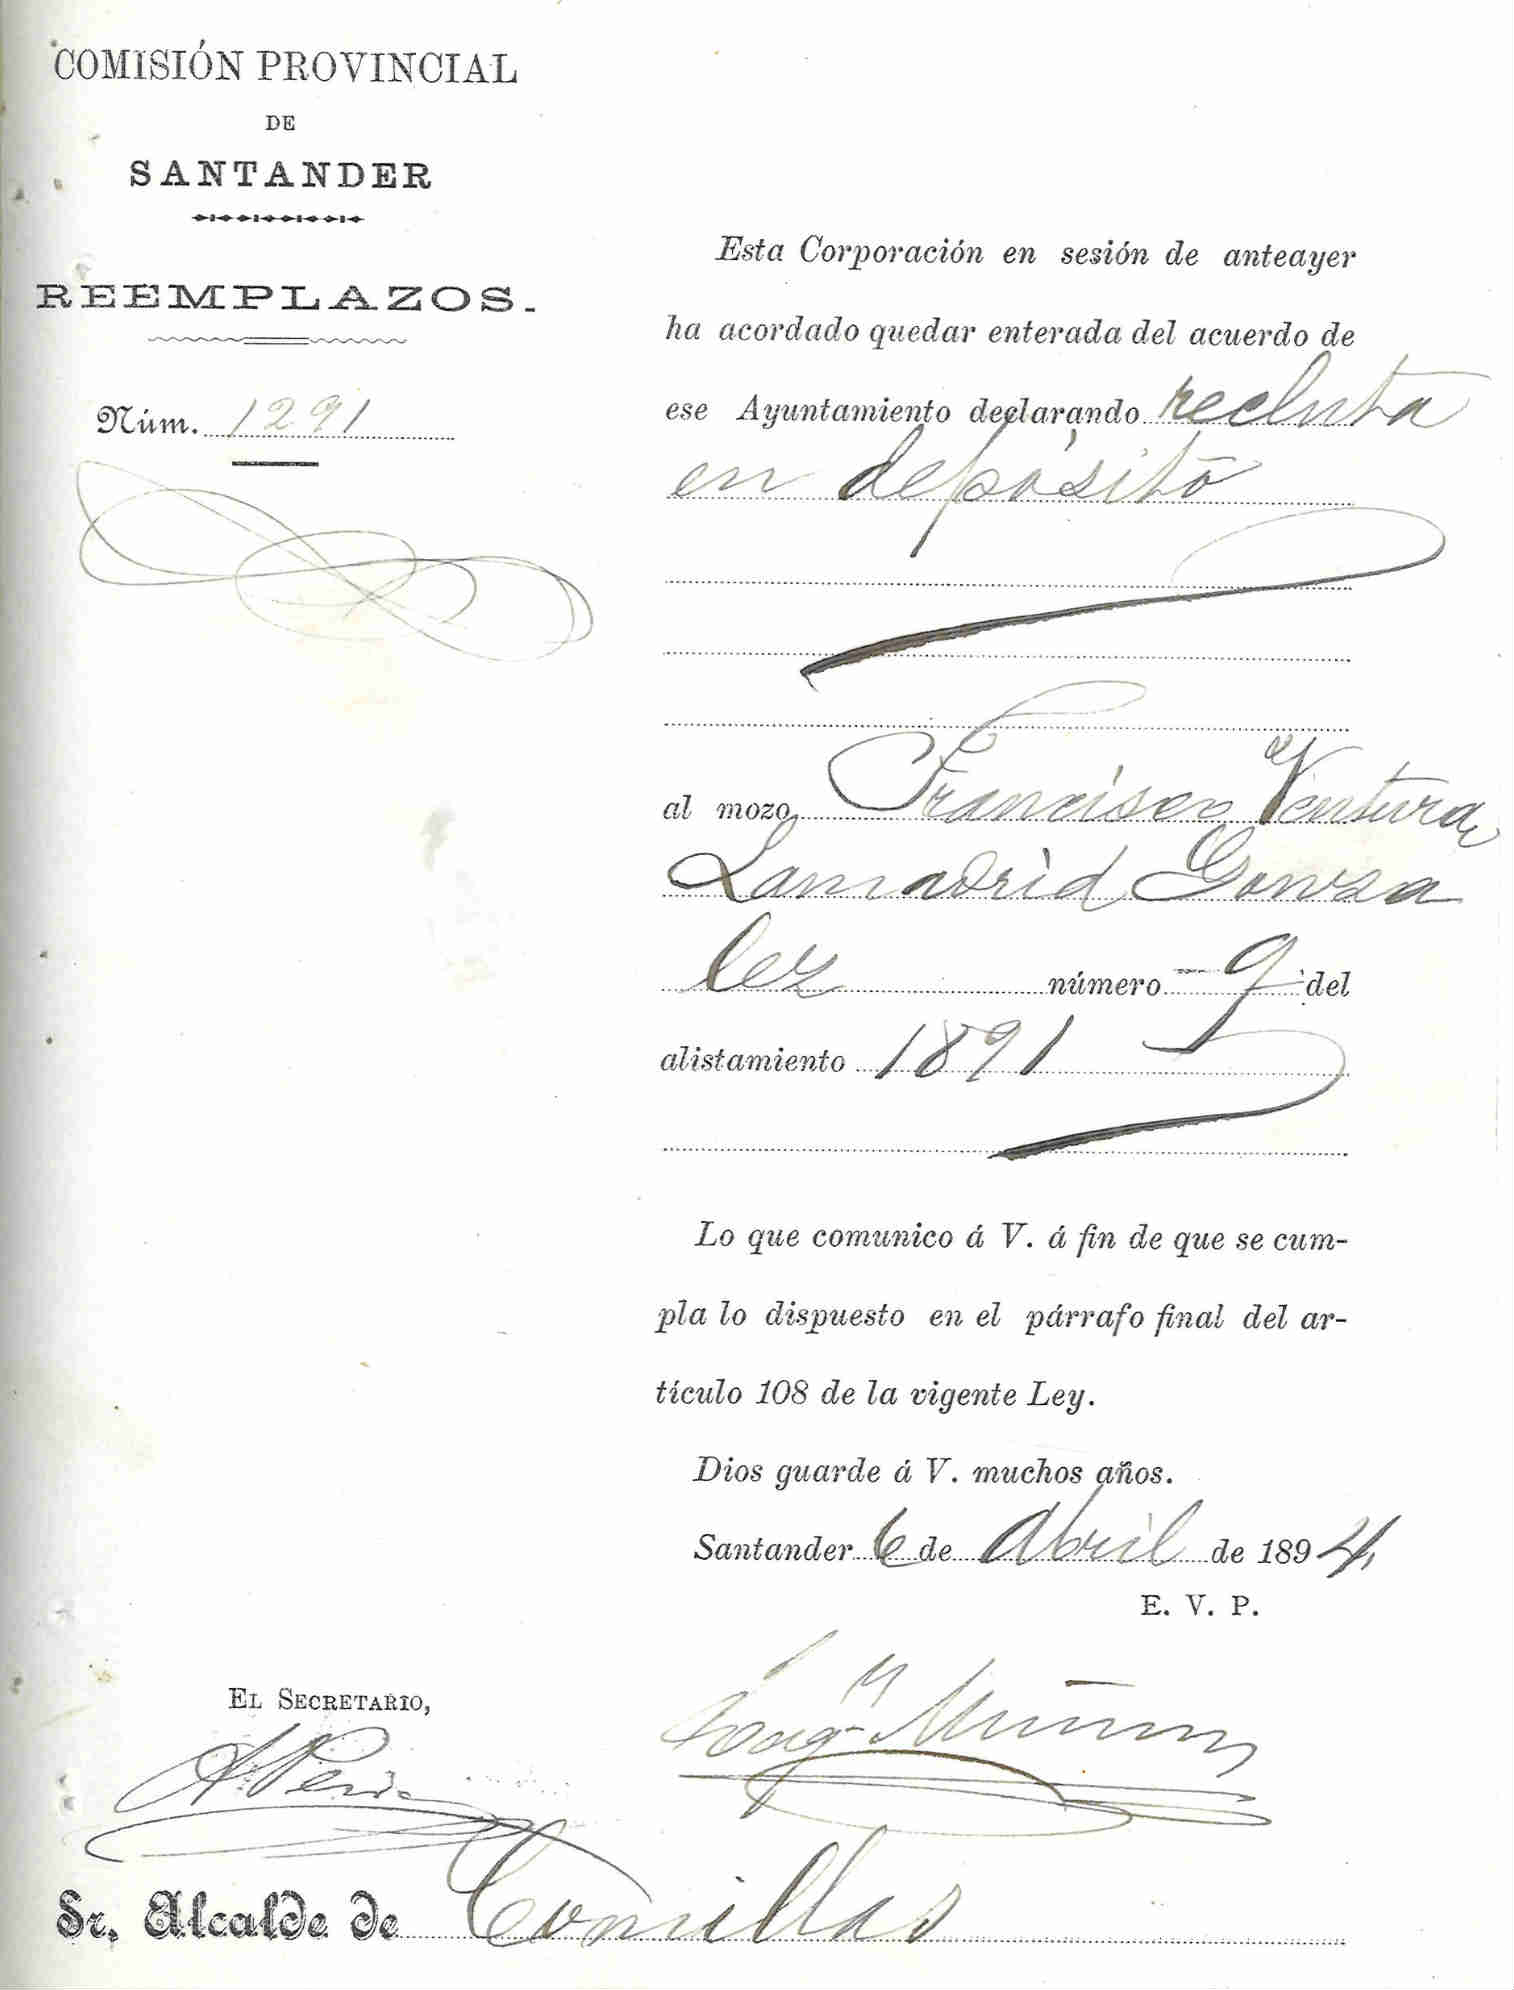 COMISIÓN PROVINCIAL
DE
SANTANDER
REEMPLAZOS.
Núm. 1291
Esta Corporación en sesión de anteayer
ha acordado quedar enterada del acuerdo de
ese Ayuntamiento declarando recluta
en depósito
al mozo Francisco Ventura
Lamadrid Gonza
lez número 9 del
alistamiento 1891
Lo que comunico á V. á fin de que se cum-
pla lo dispuesto en el párrafo final del ar-
tículo 108 de la vigente Ley.
Dios guarde á V. muchos años.
Santander 6 de Abril de 1894
E. V. P.
EL SECRETARIO,
Sr. Alcalde de Comillas